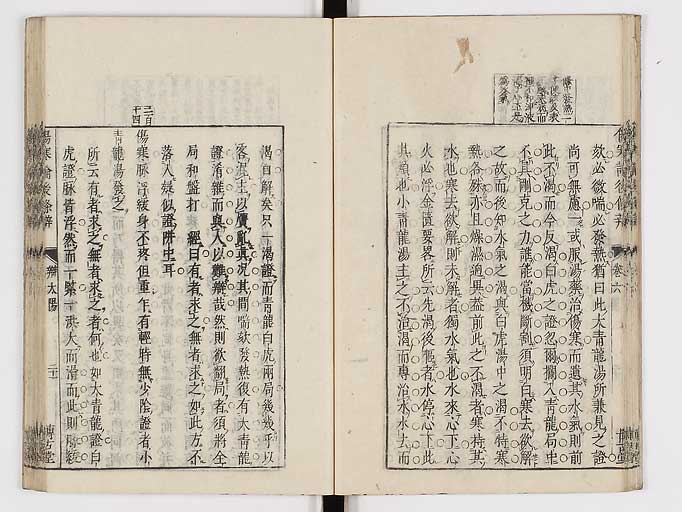 欬必微喘必發熱猶曰此大青龍湯所兼見之證
尚可無慮一或服湯藥治傷寒而遺其水氣則前
此不渴而今反渴白虎之證忽爾攔入青龍局中
不具剛克之力誰能當機斷割須明白寒去欲解
之故而後知水氣之渴與白虎湯中之渴不特寒
熱各殊亦且燥濕逈異蓋前此之不渴者寒持其
水也寒去欲解則未解者獨水氣也水來心下心
火必浮金匱要畧所云先渴後嘔者水停心下此
其類也小青龍湯主之不治渴而專治水水去而
傷寒論後條辨
卷六
渴自解矣只一渴證而青龍白虎兩局幾幾乎以
客混主以贋亂真况其間喘欬發熱復有大青龍
證淆雜而與人以難辨哉然則欲翻局者須將全
局和盤打 經曰有者求之無者求之如此方不
落入疑似證阱中耳
二百十四
傷寒脉浮緩身不疼但重乍有輕時無少陰證者小
青龍湯發之
所云有者求之無者求之者何也如大青龍證白
虎證脉皆浮然而一緊一洪大而滑而此則浮緩
傷寒論後條辨
辨太陽
二十
博古堂